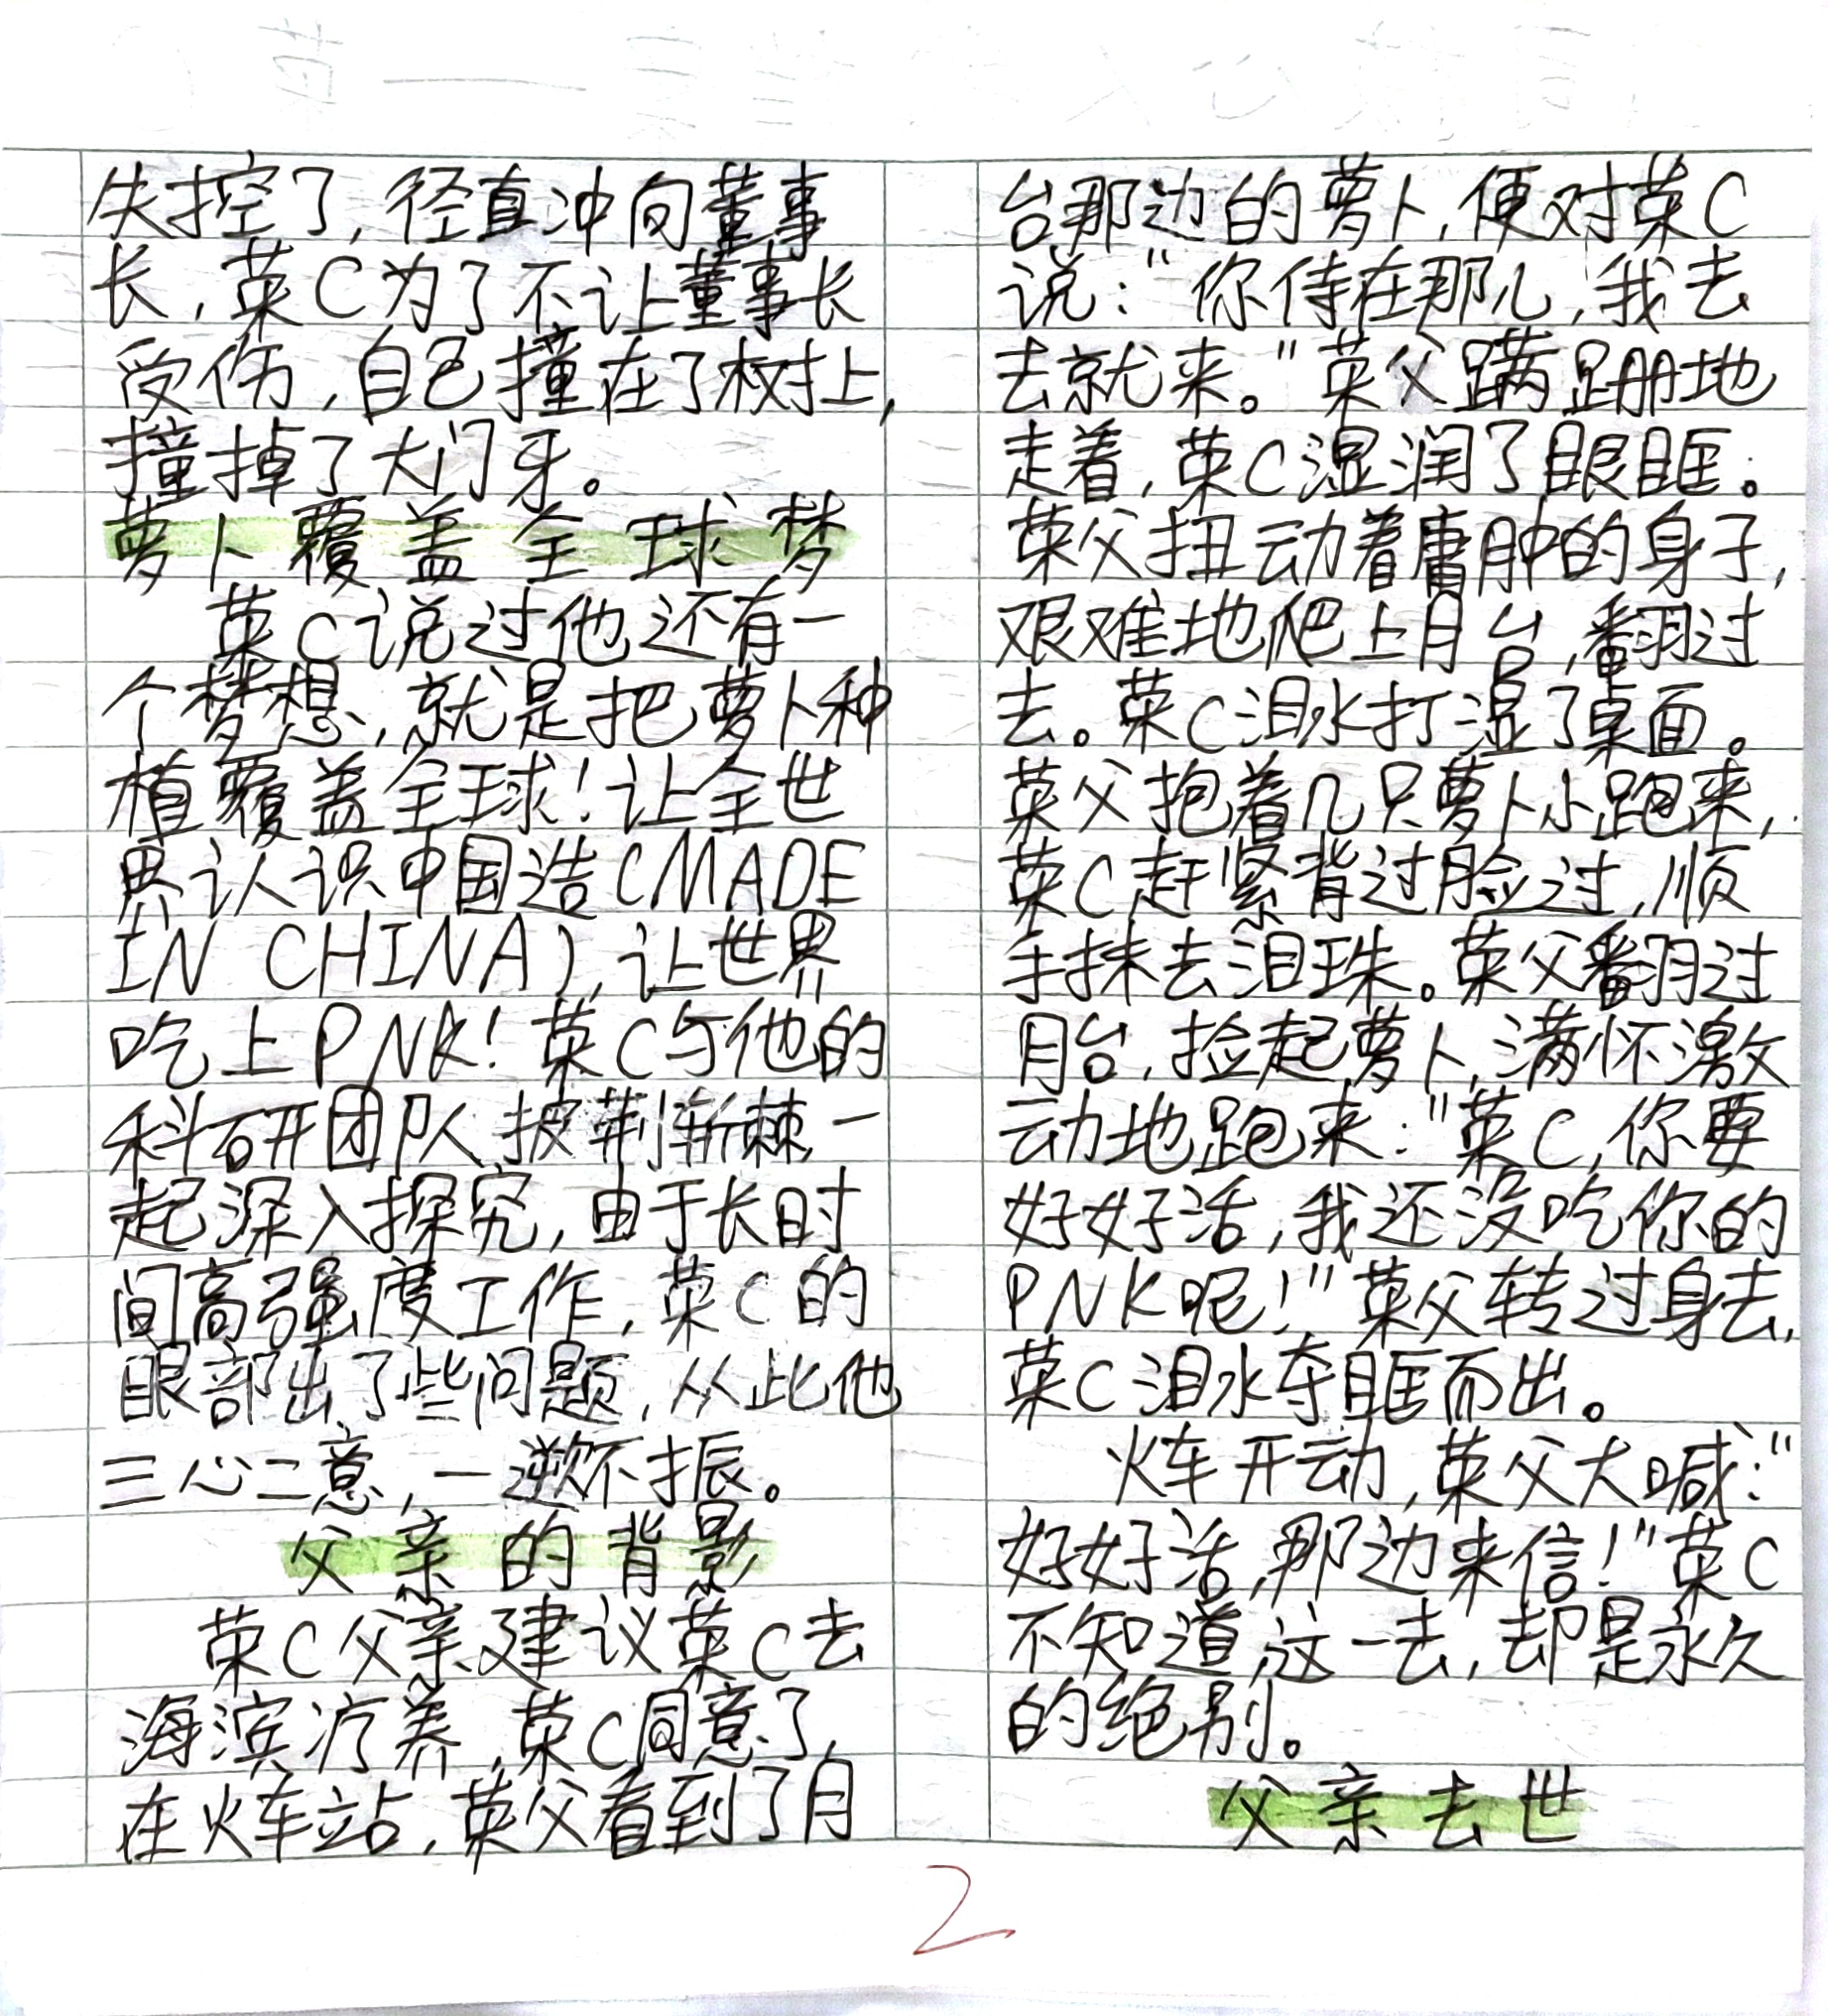 失控了,径直冲向董事
长,菜C为了不让董事长
受伤,自己撞在了树上,
撞掉了大门牙。
萝卜覆盖全球梦
菜C说过他还有一
个梦想,就是把萝卜种
植覆盖全球!让全世
界认识中国造(MADE
IN CHINA),让世界
吃上PNK!菜C与他的
科研团队披荆斩棘一
起深入探究,由于长时
间高强度工作,菜C的
眼部出了些问题,从此他
三心二意,一蹶不振。
父亲的背影
菜C父亲建议菜C去
海滨疗养,菜C同意了,
在火车站,菜父看到了月
台那边的萝卜,便对菜C
说:"你待在那儿,我去
去就来。"菜父蹒跚地
走着,菜C湿润了眼眶。
菜父扭动着臃肿的身子,
艰难地爬上月台,翻过
去。菜C泪水打湿了桌面。
菜父抱着几只萝卜小跑来,
菜C赶紧背过脸过,顺
手抹去泪珠。菜父翻过
月台,捡起萝卜,满怀激
动地跑来:"菜C,你要
好好活,我还没吃你的
PNK呢!"菜父转过身去,
菜C泪水夺眶而出。
火车开动,菜父大喊:"
好好活,那边来信!"菜C
不知道,这一去,却是永久
的绝别。
父亲去世
2